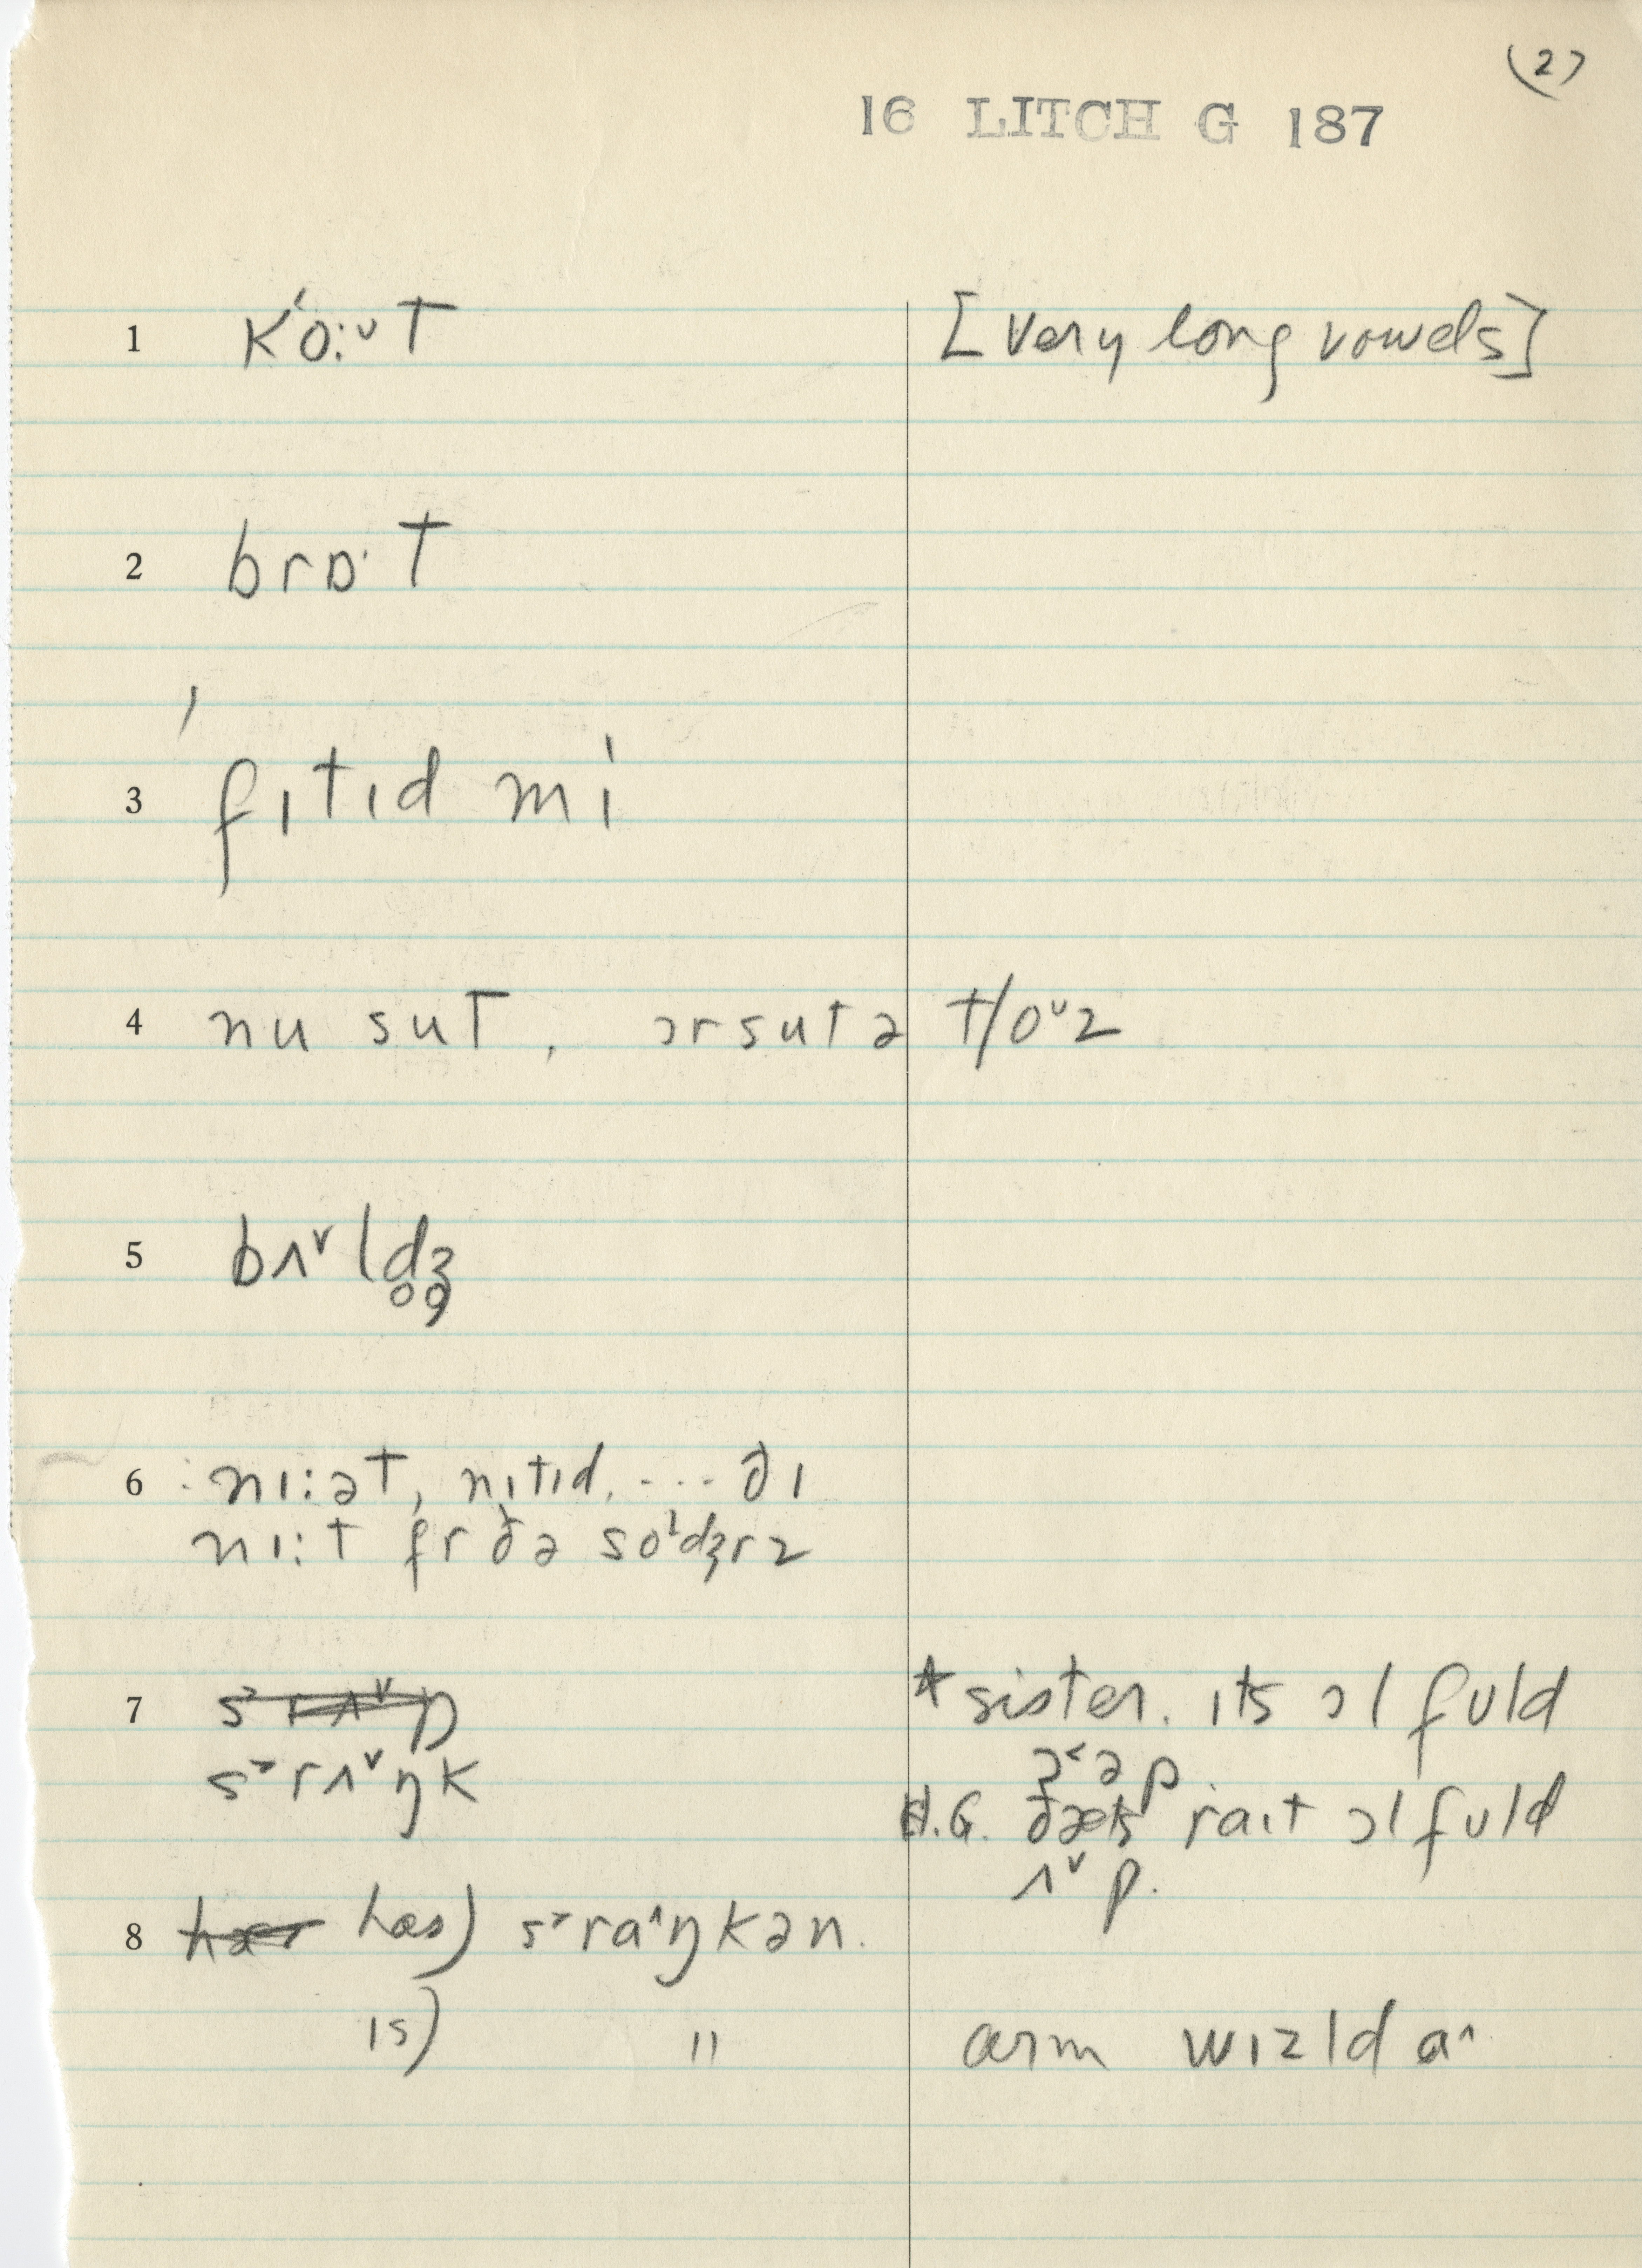 (2)
16 LITCH G 187
1 kʻo:ᵘt [very long vowels]
2 brɒ·t
3 fɪtɪd mi
4 nu sut, ɔrsutə t/oᵘz
5 bʌ˅ld̥ʒ̥
6 nɪ:ət, nɪtɪd, ... ðɪ
nɪ:t fr ðə soˡdʒrz
7 ~~s˃rʌ˅ŋ~~ *sister. ɪts ɔl fuld
s˃rʌ˅ŋk ɔ˂əp
H.G. ðæts raɪt ɔl fuld
ʌ˅p.
8 ~~hæs~~ hæs) s˃ra˄ŋkən.
ɪs) " arm wɪzld a˄